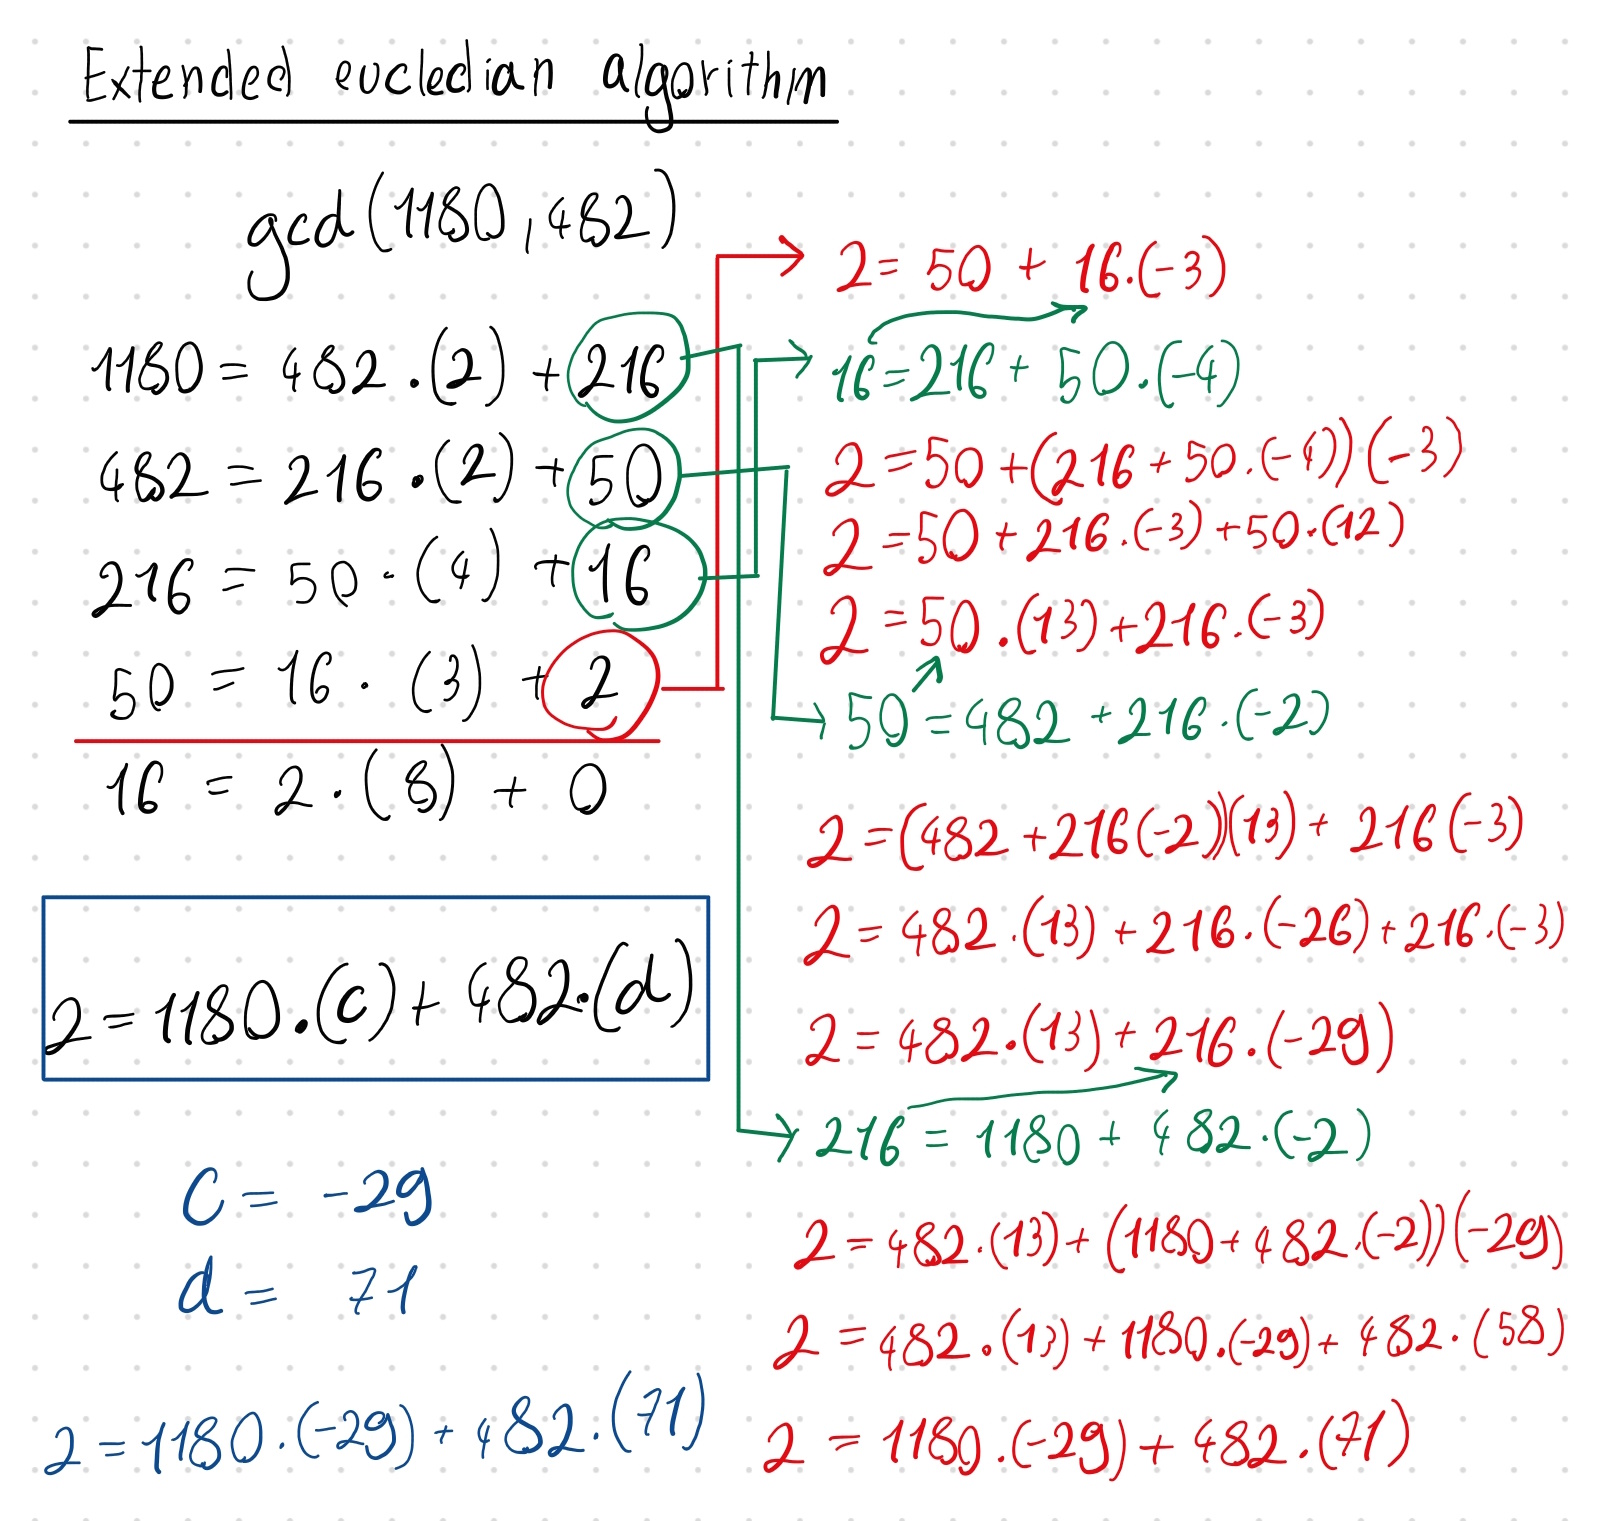 Extended eucledian algorithm
gcd(1180,482)
1180 = 482 . (2) + 216
482 = 216 . (2) + 50
216 = 50 . (4) + 16
50 = 16 . (3) + 2
16 = 2 . (8) + 0
2 = 1180 . (c) + 482 . (d)
C = -29
d = 71
2 = 1180 . (-29) + 482 . (71)
2 = 50 + 16 . (-3)
16 = 216 + 50 . (-4)
2 = 50 + (216 + 50 . (-4)) (-3)
2 = 50 + 216 . (-3) + 50 . (12)
2 = 50 . (13) + 216 . (-3)
50 = 482 + 216 . (-2)
2 = (482 + 216 (-2)) (13) + 216 (-3)
2 = 482 . (13) + 216 . (-26) + 216 . (-3)
2 = 482 . (13) + 216 . (-29)
216 = 1180 + 482 . (-2)
2 = 482 . (13) + (1180 + 482 . (-2)) (-29)
2 = 482 . (13) + 1180 . (-29) + 482 . (58)
2 = 1180 . (-29) + 482 . (71)